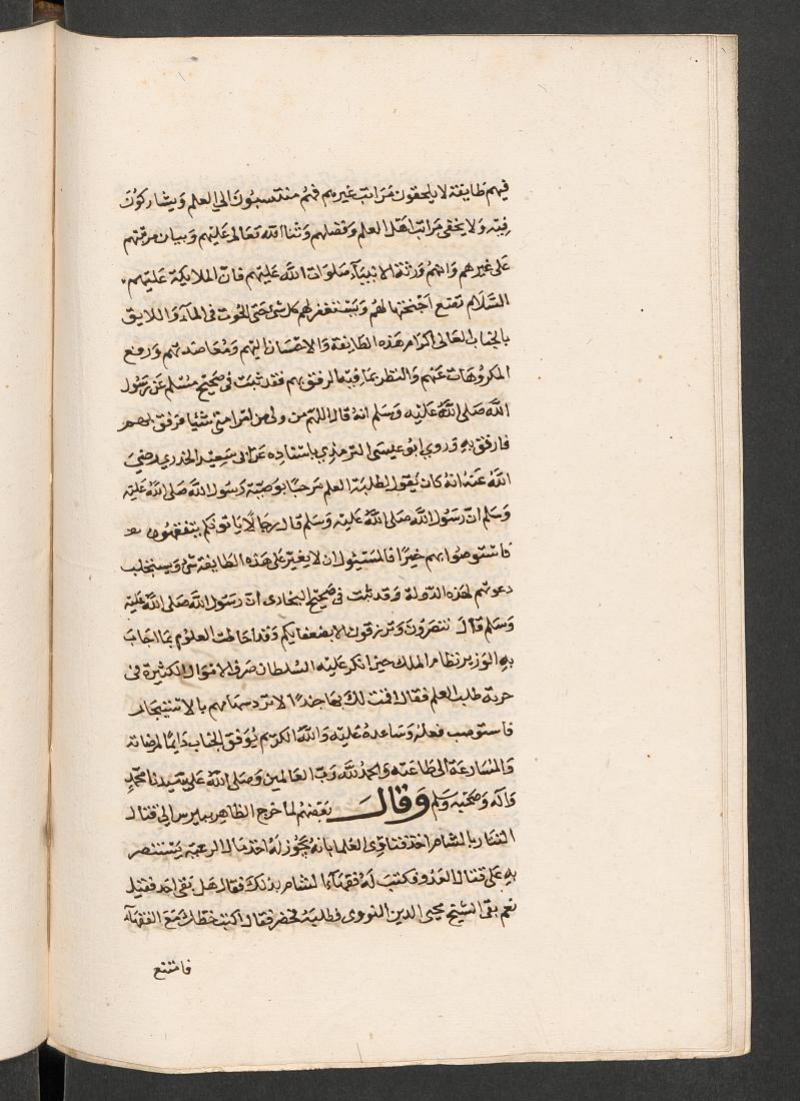 فيهم طايفة لا يلحقون مراتب غيرهم فهم منتسبون الي العلم ويشاركون
فيه ولا يخفى مراتب اهل العلم وفضلهم وثنا الله تعالى عليهم وبيان مزيتهم
على غيرهم وانهم ورثة الانبياء صلوات الله عليهم فان الملايكة عليهم
السلام تضع اجنحتها لهم ويستغفر لهم كل شئ حتى الحوت في الماء واللايق
بالجناب العالى اكرام هذه الطايفة والاحسان اليهم ومعاضدتهم ورفع
المكروهات عنهم والنظر بما فيه الرفق بهم فقد ثبت في صحيح مسلم عن رسول
الله صلى الله عليه وسلم انه قال اللهم من ولي من امر امتى شئيا فرفق بهم
فارفق به وروي ابو عيسى الترمذي باسناده عن ابى سعيد الخدري رضي
الله عنه انه كان يقول لطلبة العلم مرحبا بوصية رسول الله صلى الله عليه
وسلم ان رسول الله صلى الله عليه وسلم قال رجالا ياتونكم يتفقهون
فاستوصوا بهم خيرا فالمسئيول ان لا يغير على هذه الطايفة شئ ويستجلب
دعوتهم لهذه الدولة وقد ثبت في صحيح البخارى ان رسول الله صلى الله عليه
وسلم قال تنصرون وترزقون الا بضعفايكم وقد احاطت العلوم بما اجاب
به الوزير نظام الملك حين انكر عليه السلطان صرف الاموال الكثيرة في
جهة طلب العلم فقال اقمت لك بها جندا لا ترد سهامهم بالاسحار
فاستوصب فعله وساعده عليه والله الكريم يوفق الجناب دايما لمرضاته
والمسارعة الى طاعته والحمد لله رب العالمين وصلى الله على سيدنا محمد
واله وصحبه وسلم وقال بعضهم لما خرج الظاهر بيبرس الى قتال
التتار بالشام اخذ فتاوي العلما بانه يجوز له اخذ مال الرعية يستنصر
به على قتال العدو فكتب له فقهاء الشام بذلك فقال هل بقى احد فقيل
نعم بقى الشيخ محيى الدين النووى فطلبه فحضر فقال اكتب خطك مع الفقهاء
فامتنع